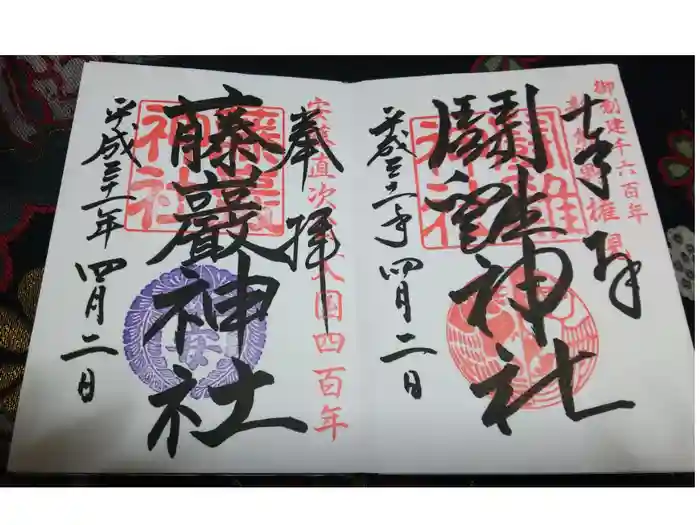 御創建千六百年
新熊野権現
奉拝
闘雞神社
平成三十一年
四月二日
安藤直次公入国四百年
奉拝
藤巖神社
平成三十一年
四月二日